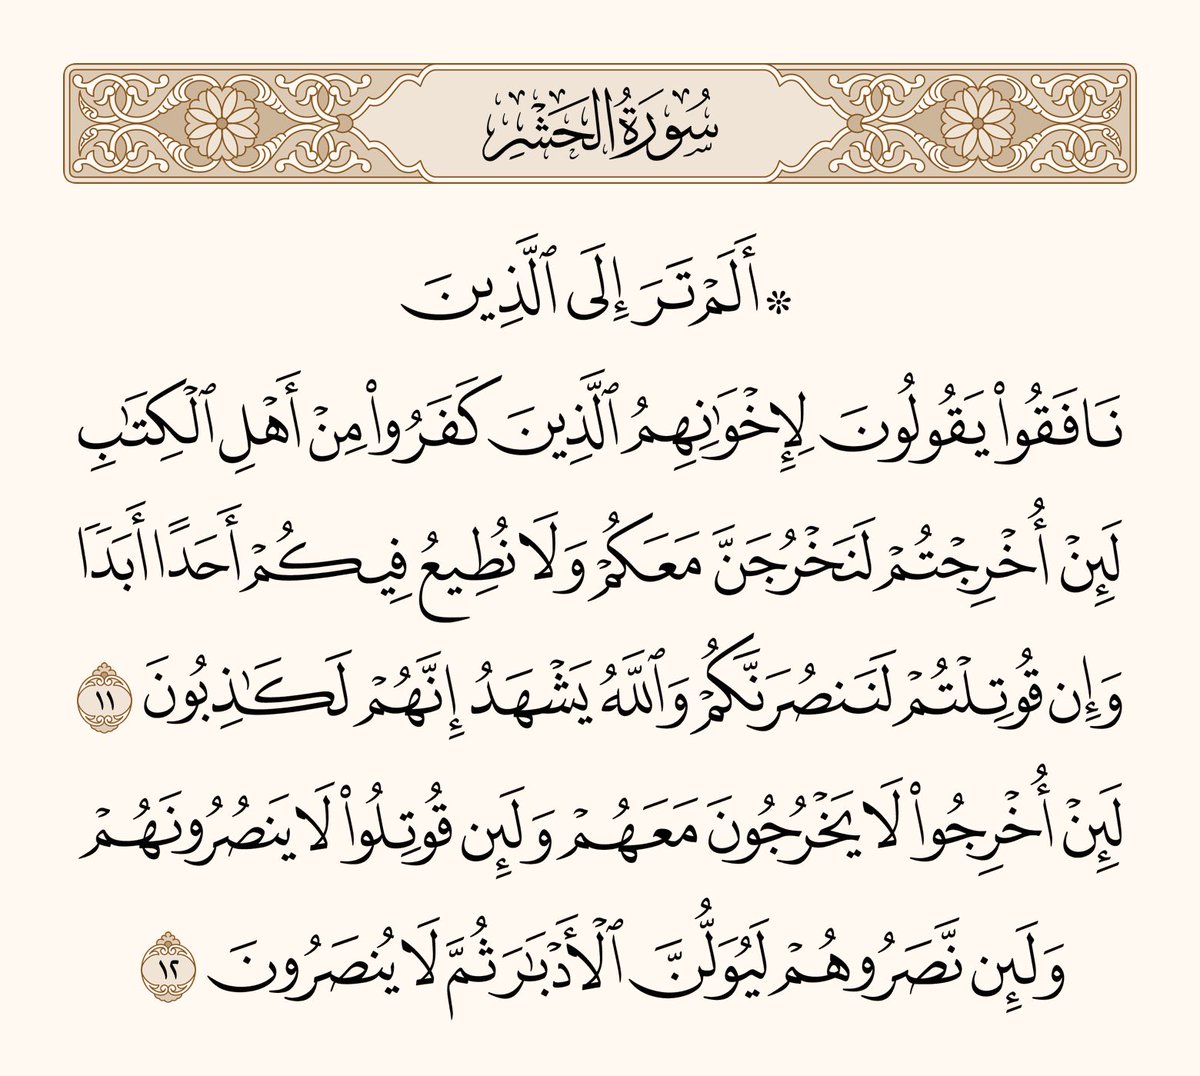 سُورَةُ الحَشْرِ
۞ أَلَمۡ تَرَ إِلَى ٱلَّذِينَ
نَافَقُواْ يَقُولُونَ لِإِخۡوَٰنِهِمُ ٱلَّذِينَ كَفَرُواْ مِنۡ أَهۡلِ ٱلۡكِتَٰبِ
لَئِنۡ أُخۡرِجۡتُمۡ لَنَخۡرُجَنَّ مَعَكُمۡ وَلَا نُطِيعُ فِيكُمۡ أَحَدًا أَبَدٗا
وَإِن قُوتِلۡتُمۡ لَنَنصُرَنَّكُمۡ وَٱللَّهُ يَشۡهَدُ إِنَّهُمۡ لَكَٰذِبُونَ ١١
لَئِنۡ أُخۡرِجُواْ لَا يَخۡرُجُونَ مَعَهُمۡ وَلَئِن قُوتِلُواْ لَا يَنصُرُونَهُمۡ
وَلَئِن نَّصَرُوهُمۡ لَيُوَلُّنَّ ٱلۡأَدۡبَٰرَ ثُمَّ لَا يُنصَرُونَ ١٢